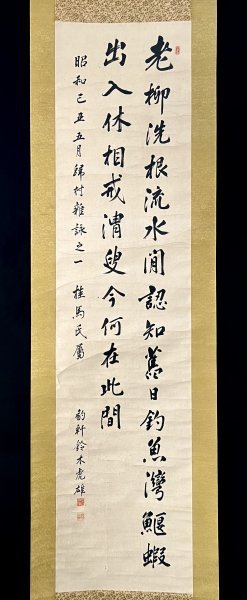 老柳洗根流水間認知舊日釣魚灣鰕蝦
出入休相戒渭叟今何在此間
昭和己丑五月歸村雜詠之一　桂馬氏屬
豹軒鈴木虎雄